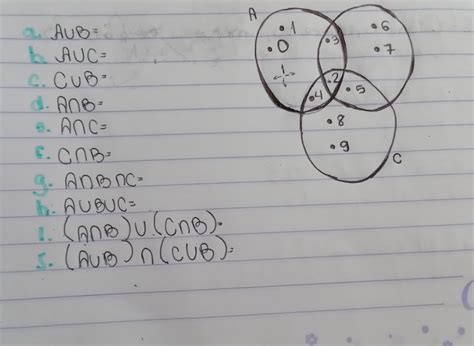 a. A∪B=
b. A∪C=
c. C∪B=
d. A∩B=
e. A∩C=
f. C∩B=
g. A∩B∩C=
h. A∪B∪C=
i. (A∩B)∪(C∩B)=
j. (A∪B)∩(C∪B)=
A
1
0
3
6
7
2
4
5
8
9
C